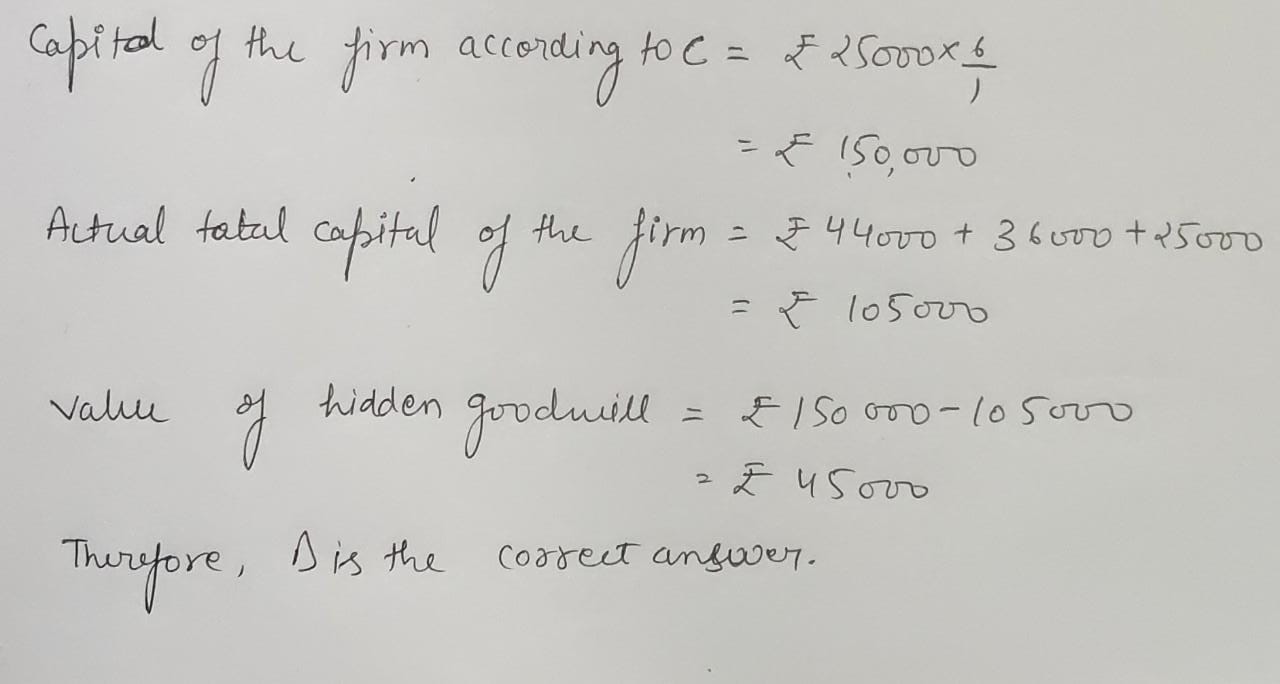 Capital of the firm according to C = ₹ 25000 × 6/1
= ₹ 150,000
Actual total capital of the firm = ₹ 44000 + 36000 + 25000
= ₹ 105000
Value of hidden goodwill = ₹ 150 000 - 105000
= ₹ 45000
Therefore, D is the correct answer.